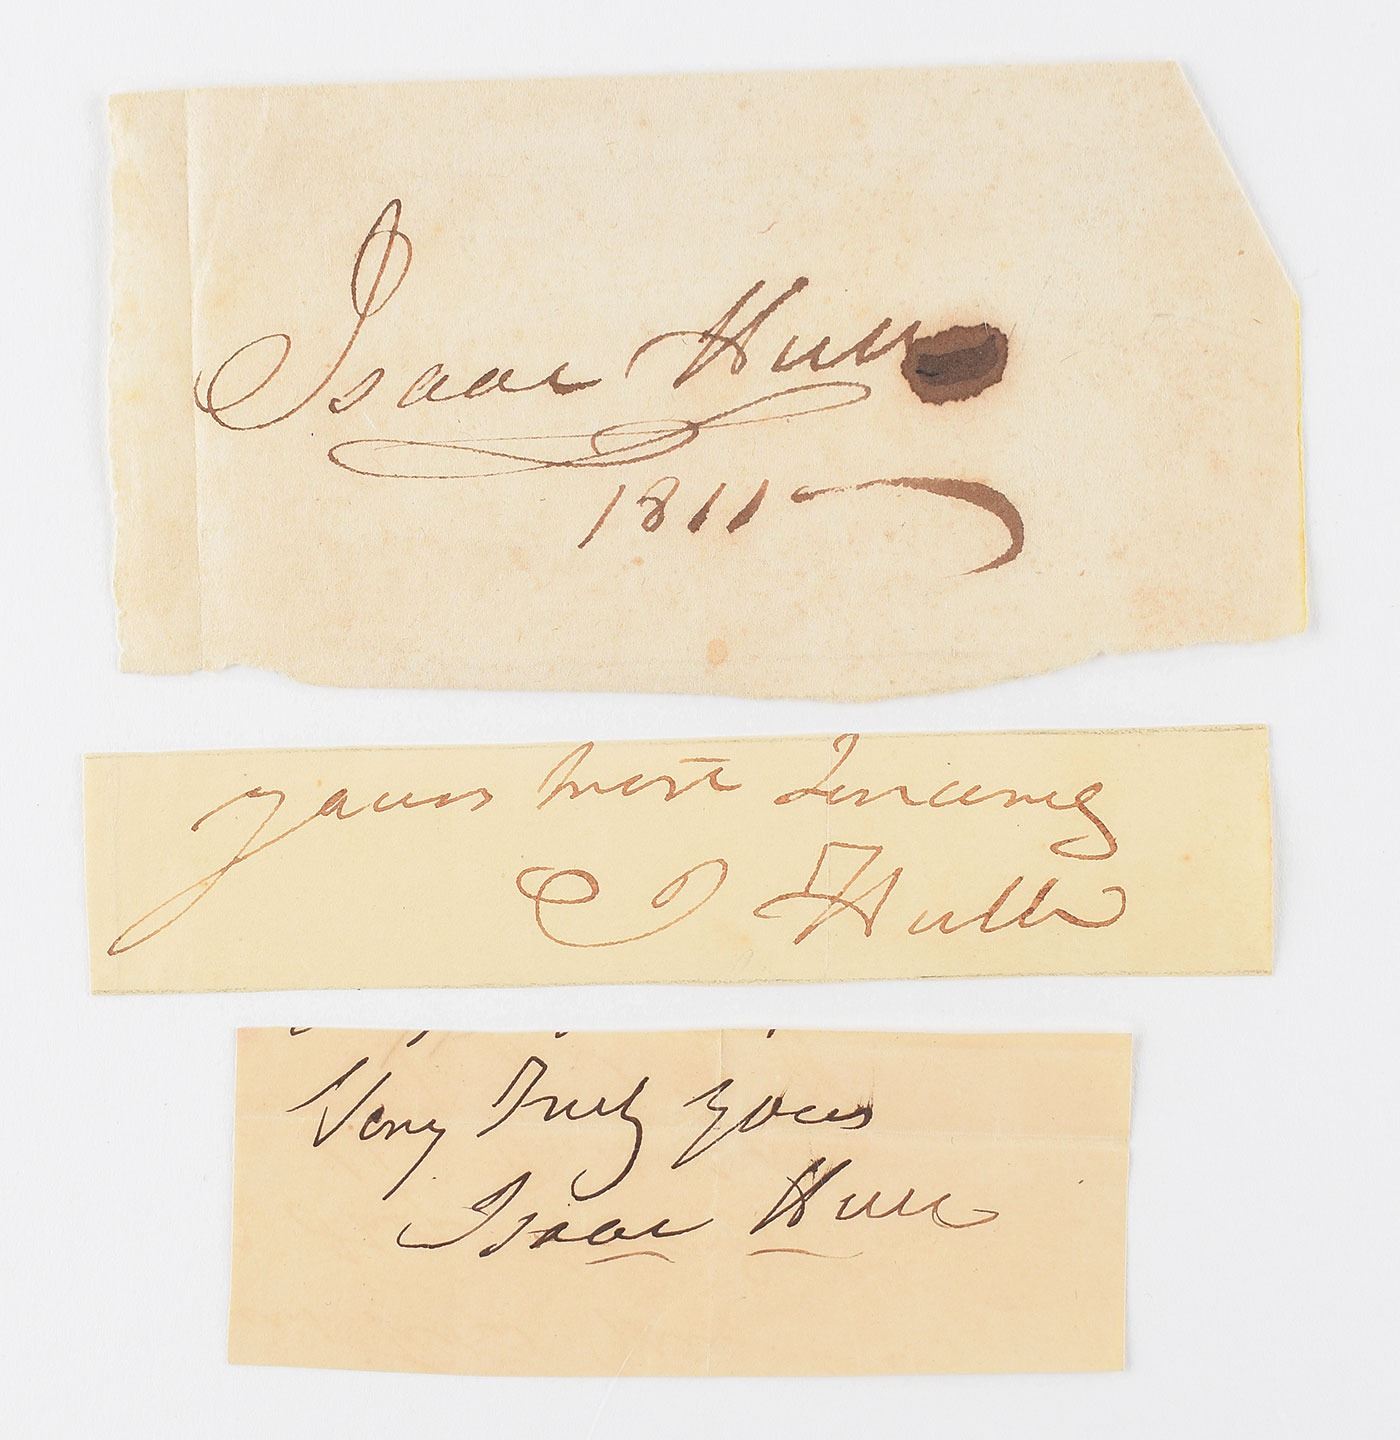 Isaac Hull
1811
yours most Sincerely
I Hull
Very Truly yours
Isaac Hull